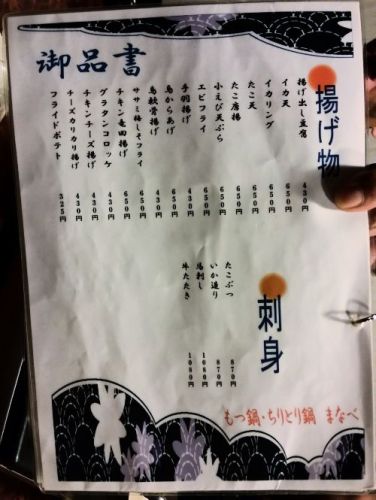 御品書
揚げ物
揚げ出し豆腐 430円
イカ天 650円
イカリング 650円
たこ天 650円
たこ唐揚 650円
小えび天ぷら 650円
エビフライ 650円
手羽揚げ 430円
鳥からあげ 650円
鳥軟骨揚げ 430円
ササミ梅しそフライ 650円
チキン竜田揚げ 430円
グラタンコロッケ 430円
チキンチーズ揚げ 430円
チーズカリカリ揚げ 430円
フライドポテト 325円
刺身
たこぶつ 870円
いか造り 870円
馬刺し 1080円
牛たたき 1080円
もつ鍋・ちりとり鍋 まなべ